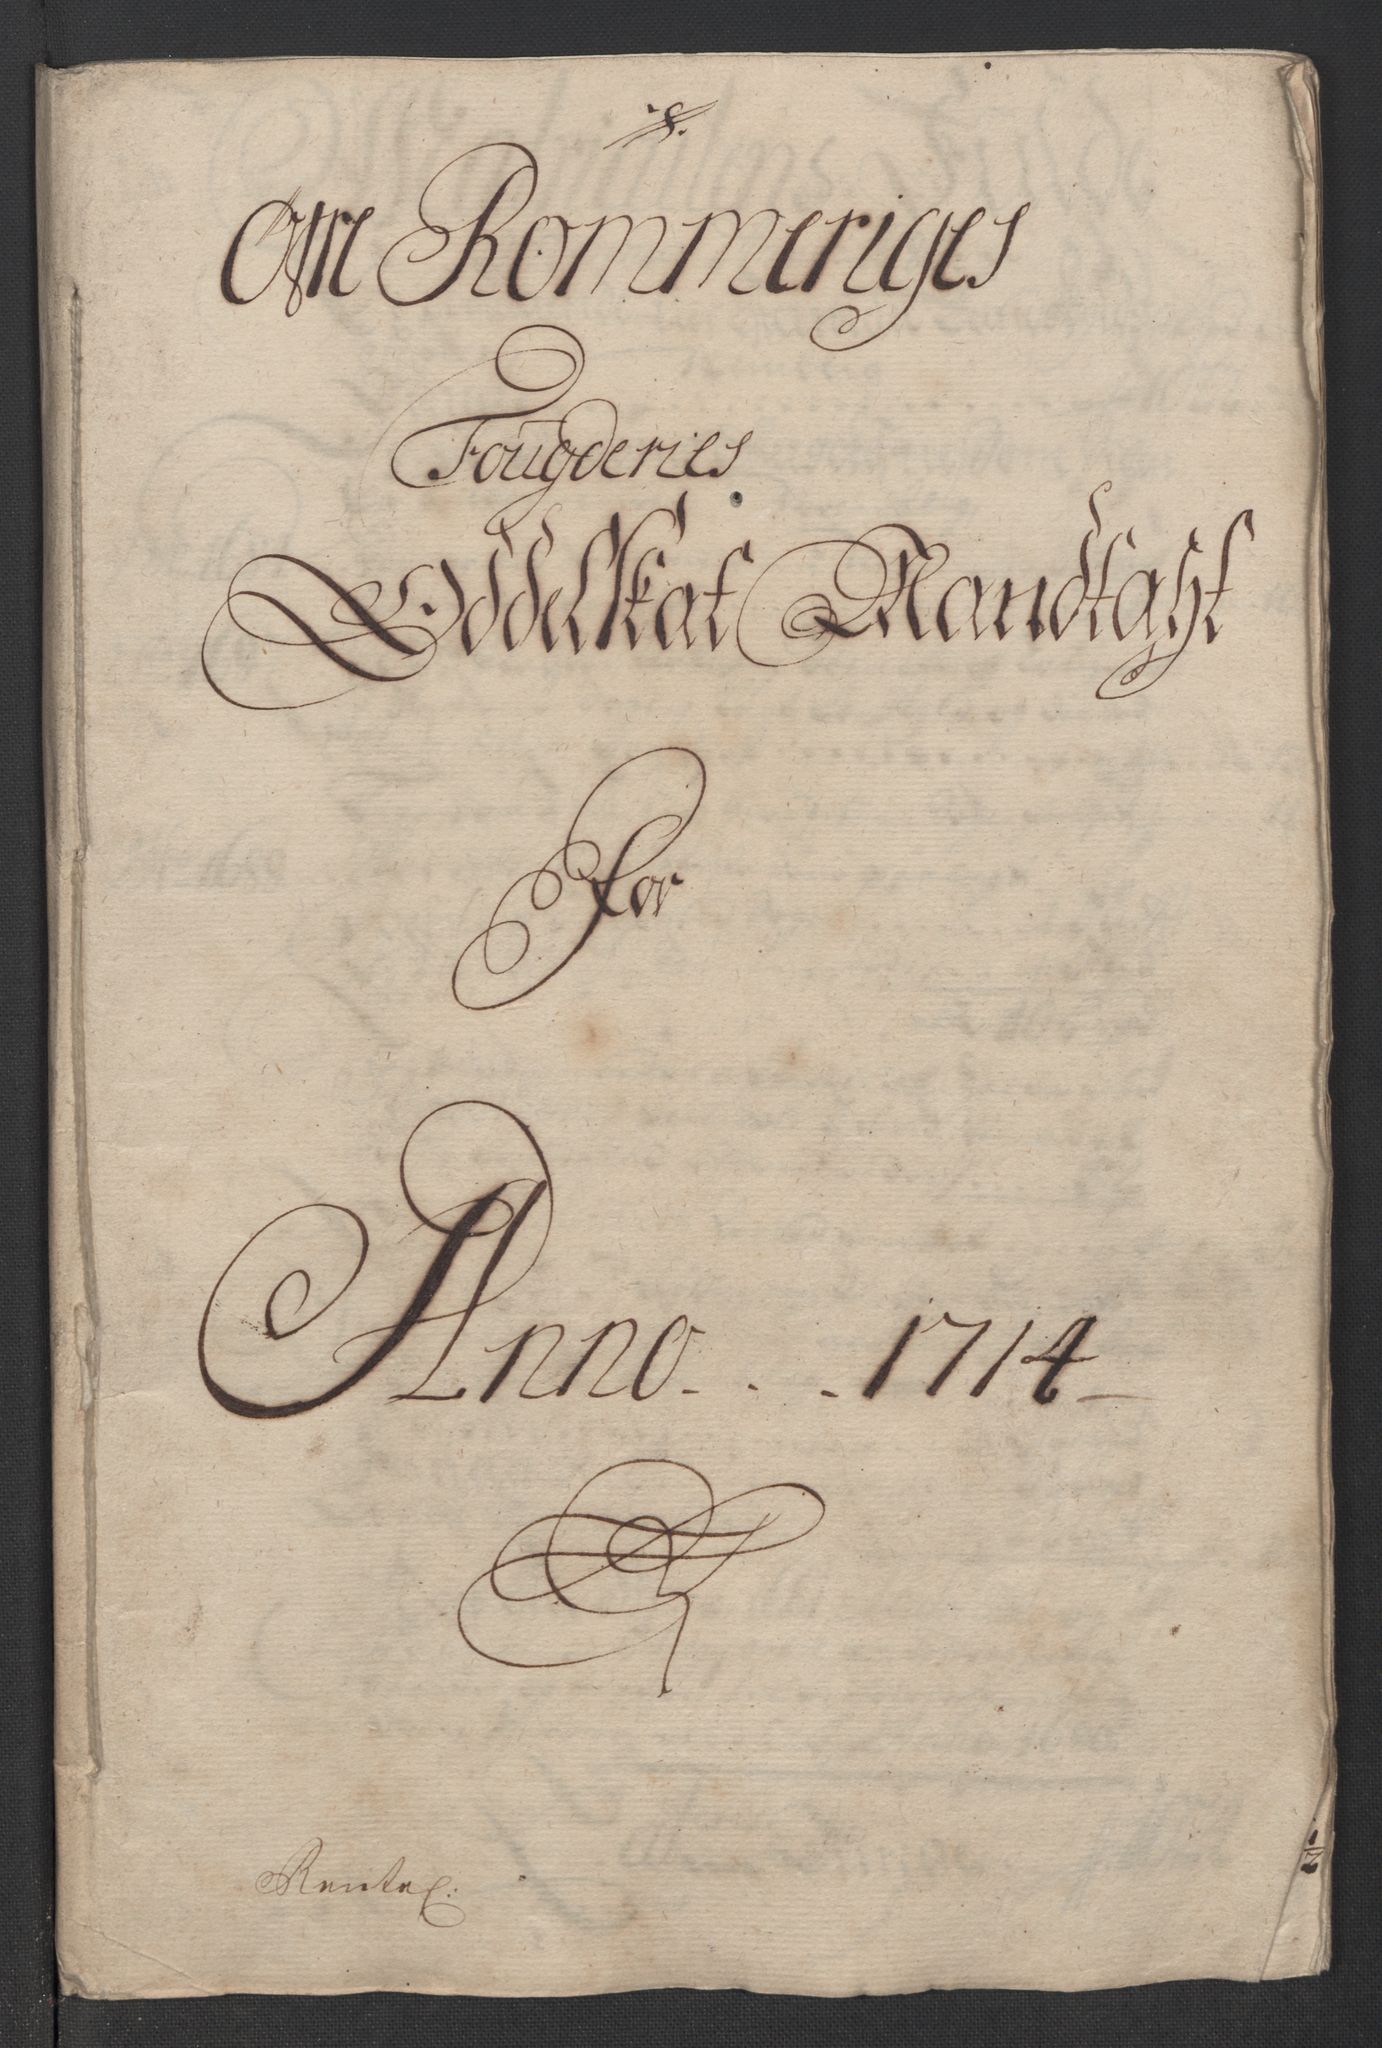 8.
Øfre Rommeriges
Fougderies
Oddelskat Mandtahl
For
Anno - - - 1714 -
Rentec: